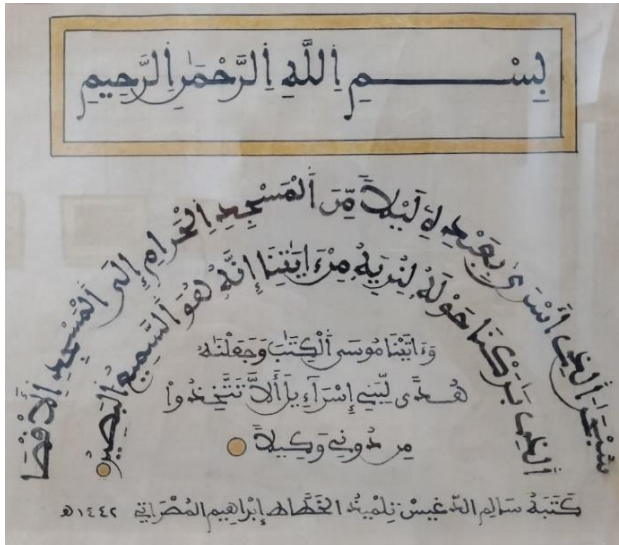 بِسْمِ اِللَّهِ اِلرَّحْمَٰنِ اِلرَّحِيمِ
سُبْحَٰنَ اَلذِے أَسْرَىٰ بِعَبْدِهِۦ لَيْلاً مِّنَ اَلْمَسْجِدِ اِلْحَرَامِ إِلَى اَلْمَسْجِدِ اِلَاقْصَا
اَلذِے بَٰرَكْنَا حَوْلَهُۥ لِنُرِيَهُۥ مِنَ ـايَٰتِنَا إِنَّهُۥ هُوَ اَلسَّمِيعُ اُلْبَصِيرُ
وَءَاتَيْنَا مُوسَى اَلْكِتَٰبَ وَجَعَلْنَٰهُ
هُدىً لِّبَنِے إِسْرَآءِيلَ أَلَّا تَتَّخِذُوا
مِن دُونِے وَكِيلاً
كَتَبَهُ سَالِم الدّغيس تِلْمِيذُ الخَطَّاط إِبْرَاهِيم المُصْرَاتِي ١٤٤٢هـ